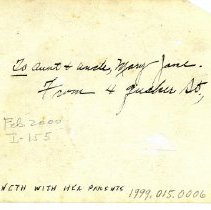 To Aunt & Uncle, Mary Jane.
From 4 Quaker St,
Feb 2000
I-155
NETH WITH HER PARENTS
1999.015.0006